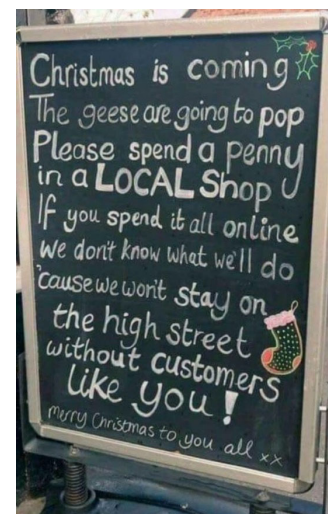 Christmas is coming
The geese are going to pop
Please spend a penny
in a LOCAL Shop
If you spend it all online
We don't know what we'll do
'cause we won't stay on
the high street
without customers
like you!
Merry Christmas to you all xx